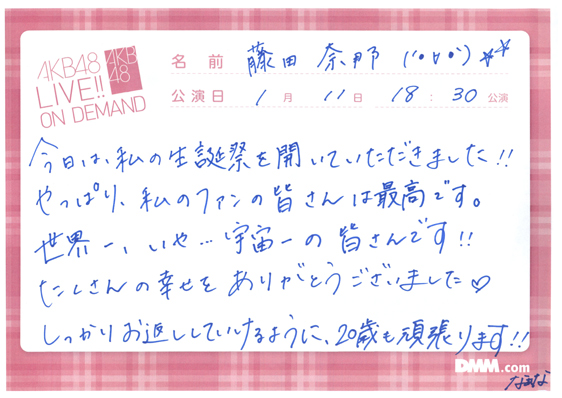 AKB48
LIVE!!
ON DEMAND
AKB
48
名前 藤田 奈那 ('•v•')☆☆
公演日 1月 11日 18:30 公演
今日は、私の生誕祭を開いていただきました!!
やっぱり、私のファンの皆さんは最高です。
世界一、いや…宇宙一の皆さんです!!
たくさんの幸せをありがとうございました♡
しっかりお返ししていけるように、20歳も頑張ります!!
DMM.com
なぁな